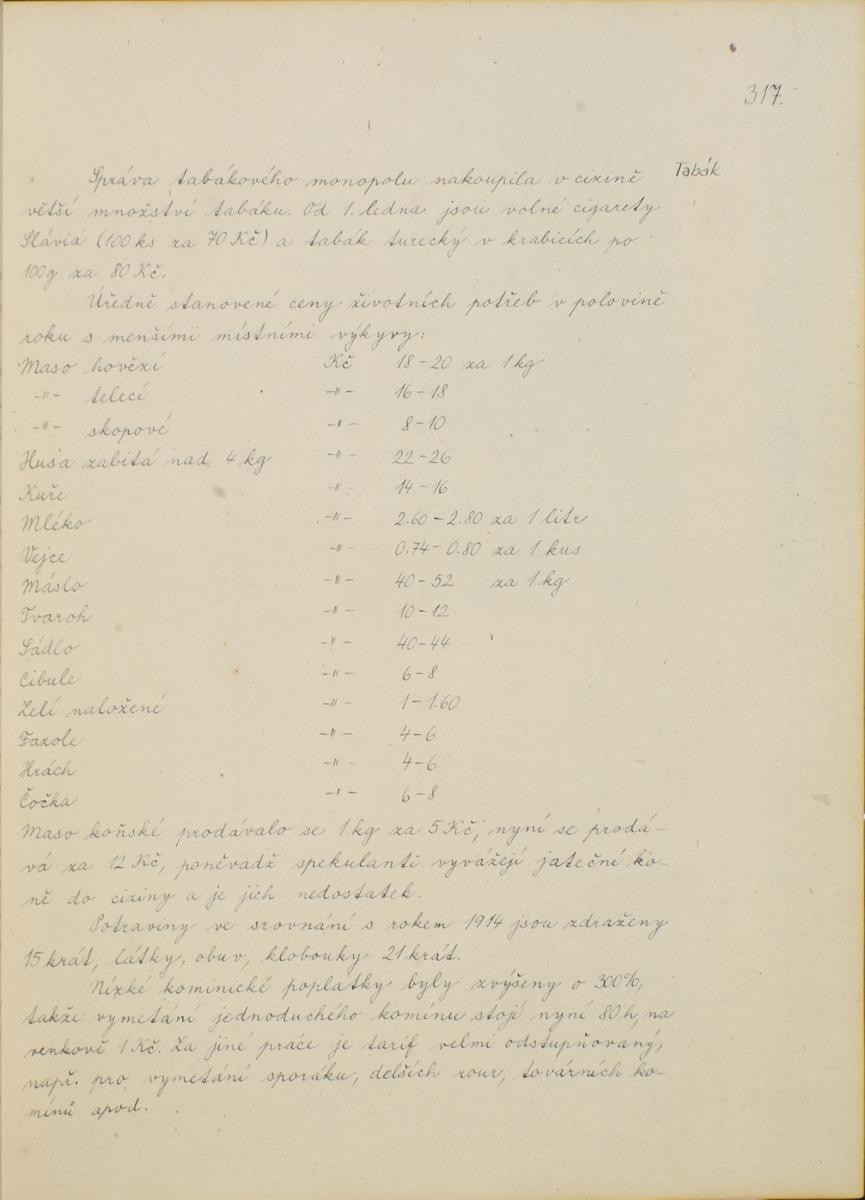 317.
Tabák
Správa tabákového monopolu nakoupila v cizině
větší množství tabáku. Od 1. ledna jsou volné cigarety
Slávia (100 ks za 70 Kč) a tabák turecký v krabicích po
100g za 80 Kč.
Úředně stanovené ceny životních potřeb v polovině
roku s menšími místními výkyvy:
Maso hovězí Kč 18-20 za 1 kg
-"- telecí -"- 16-18
-"- skopové -"- 8-10
Husa zabitá nad 4 kg -"- 22-26
Kuře -"- 14-16
Mléko -"- 2.60-2.80 za 1 litr
Vejce -"- 0.74-0.80 za 1 kus
Máslo -"- 40-52 za 1 kg
Tvaroh -"- 10-12
Sádlo -"- 40-44
Cibule -"- 6-8
Zelí naložené -"- 1-1.60
Fazole -"- 4-6
Hrách -"- 4-6
Čočka -"- 6-8
Maso koňské prodávalo se 1 kg za 5 Kč, nyní se prodá-
vá za 12 Kč, poněvadž spekulanti vyvážejí jateční ko-
ně do ciziny a je jich nedostatek.
Potraviny ve srovnání s rokem 1914 jsou zdraženy
15 krát, látky, obuv, klobouky 21 krát.
Nízké kominické poplatky byly zvýšeny o 300%,
takže vymetání jednoduchého komínu stojí nyní 80 h, na
venkově 1 Kč. Za jiné práce je tarif velmi odstupňovaný,
např. pro vymetání sporáku, delších rour, továrních ko-
mínů apod.